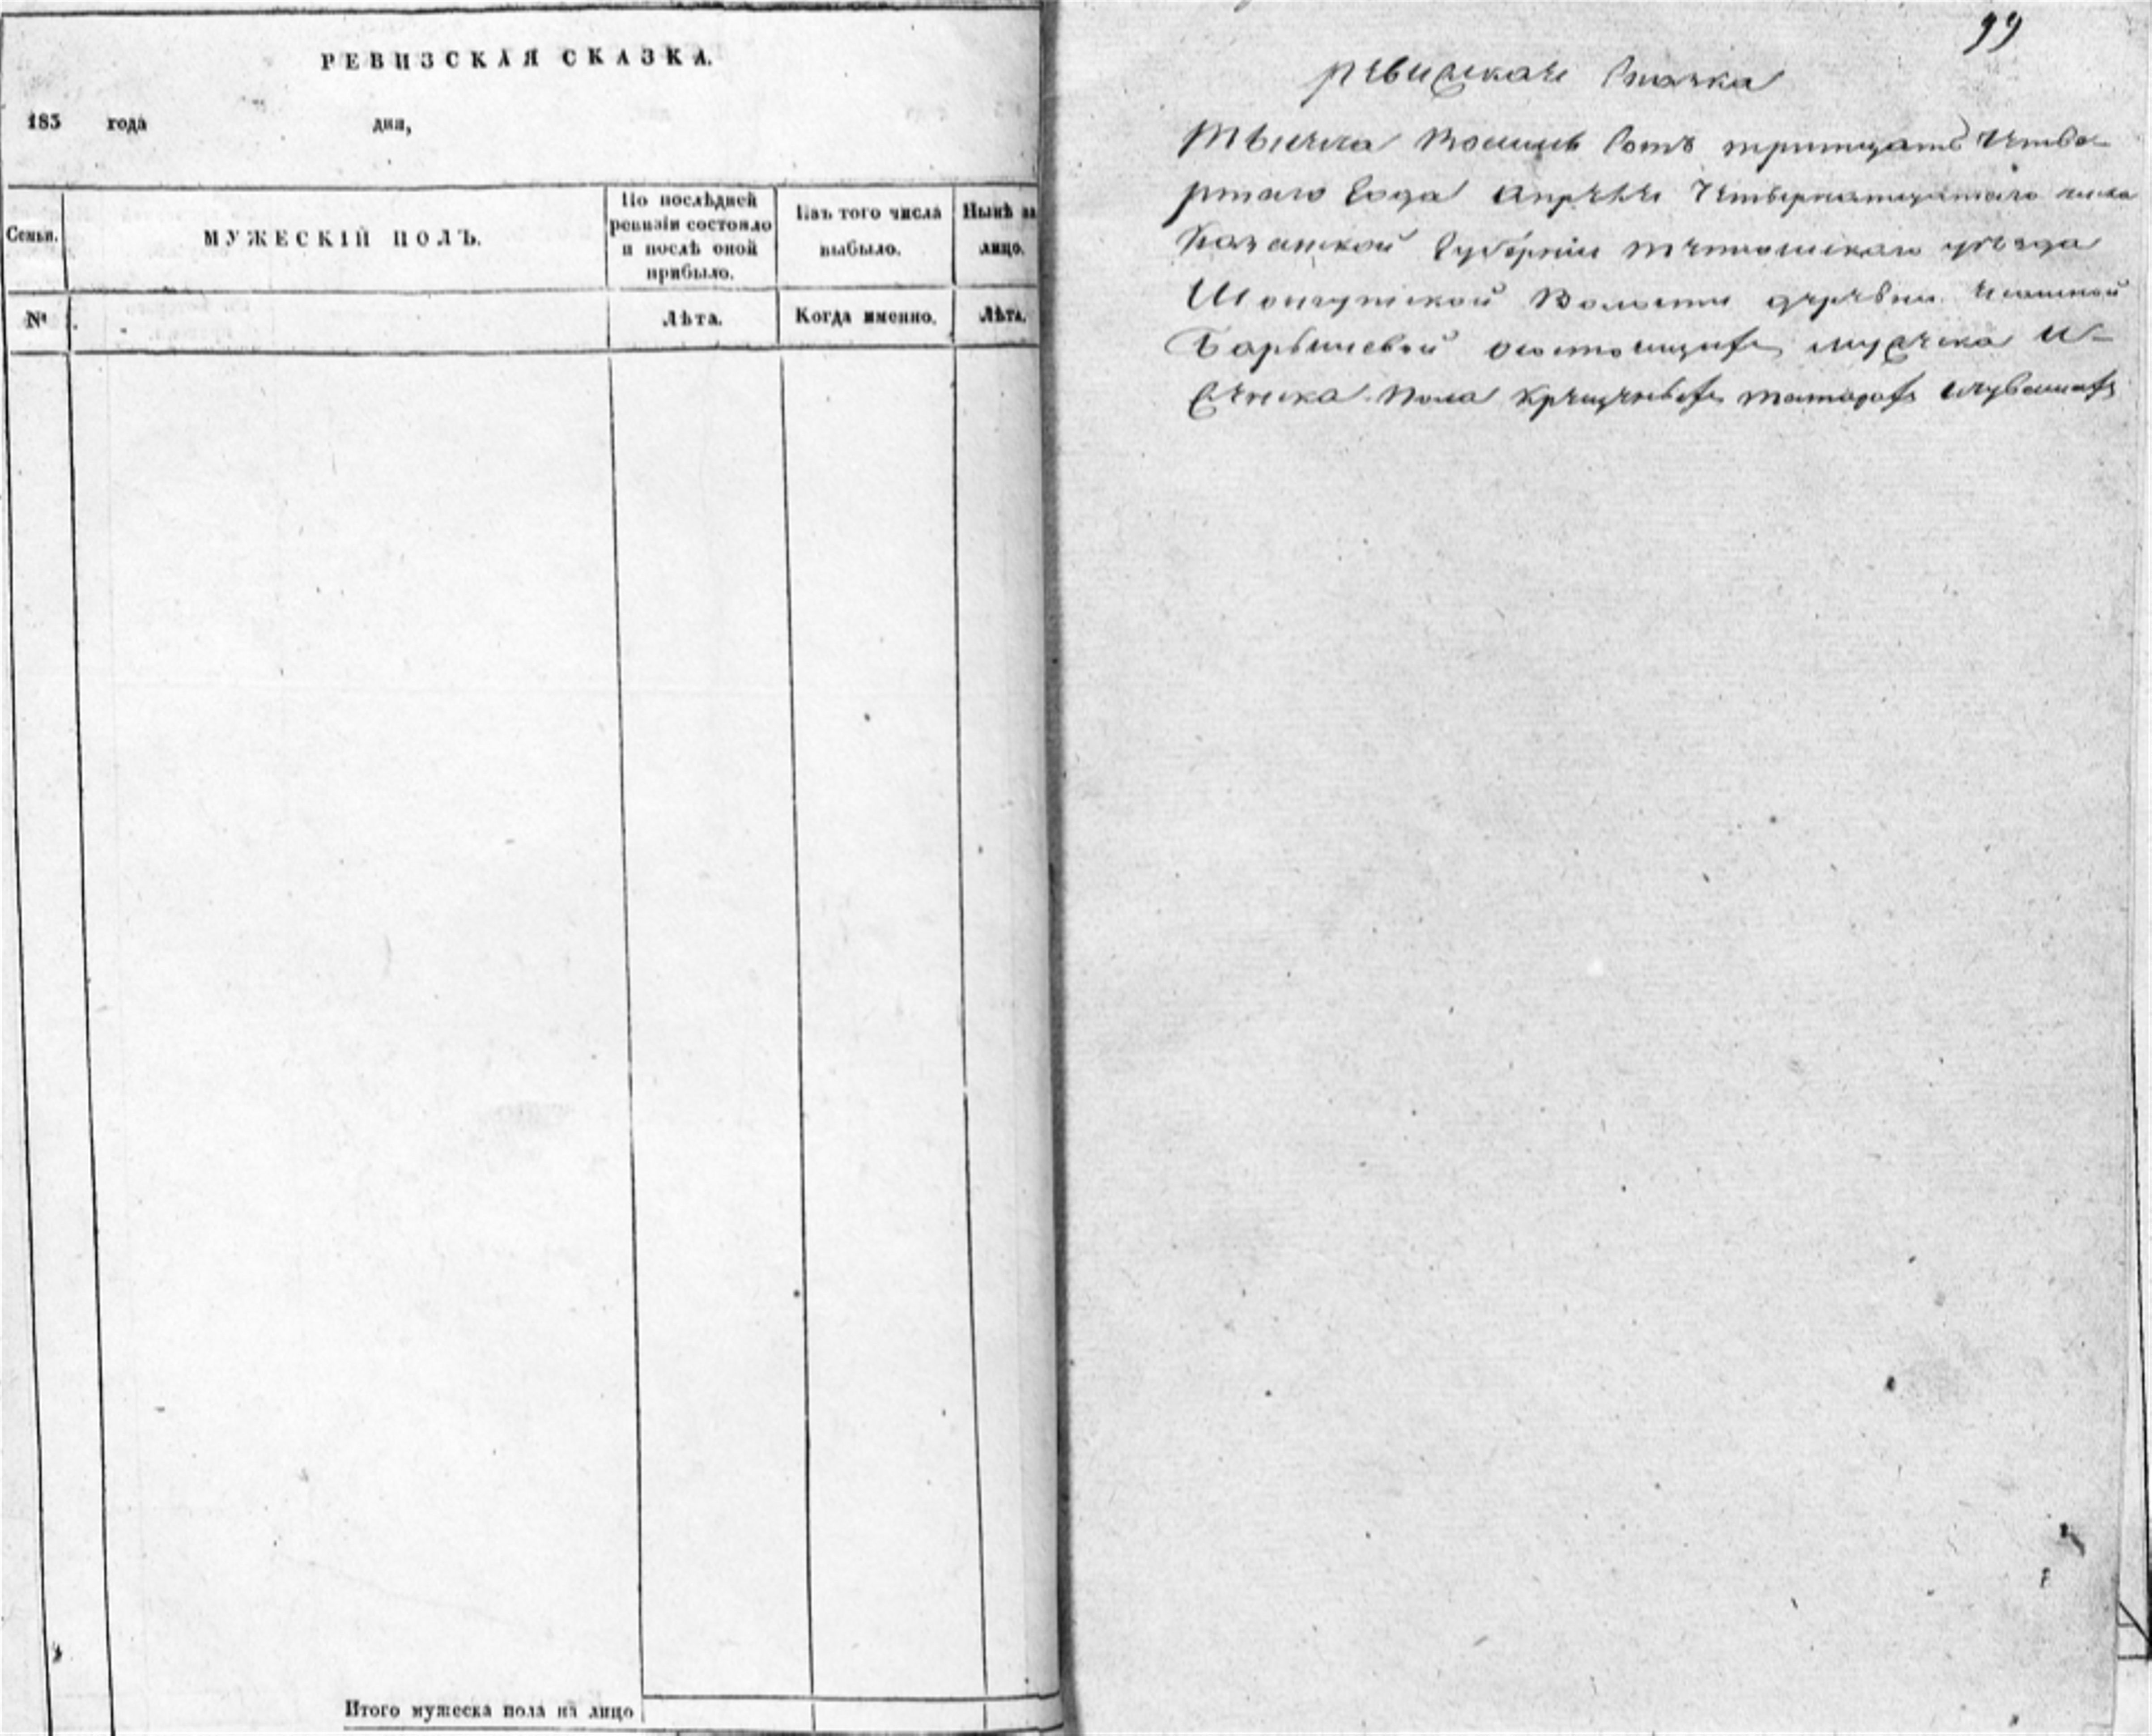 РЕВИЗСКАЯ СКАЗКА.
183 года дня,
Семьи.
МУЖЕСКІЙ ПОЛЪ.
По послѣдней
ревизіи состояло
и послѣ оной
прибыло.
Изъ того числа
выбыло.
Нынѣ на
лицо.
№
Лѣта.
Когда именно.
Лѣта.
Итого мужеска пола на лицо
99
ревизская сказка
тысяча восимь сотъ тритцать четве-
ртаго года апреля четвернатцатаго числа
Казанской губерніи тетюшскаго уезда
волости деревни
Барышевой состоящихъ мужеска и
женска пола крещеныхъ татаръ чувашъ